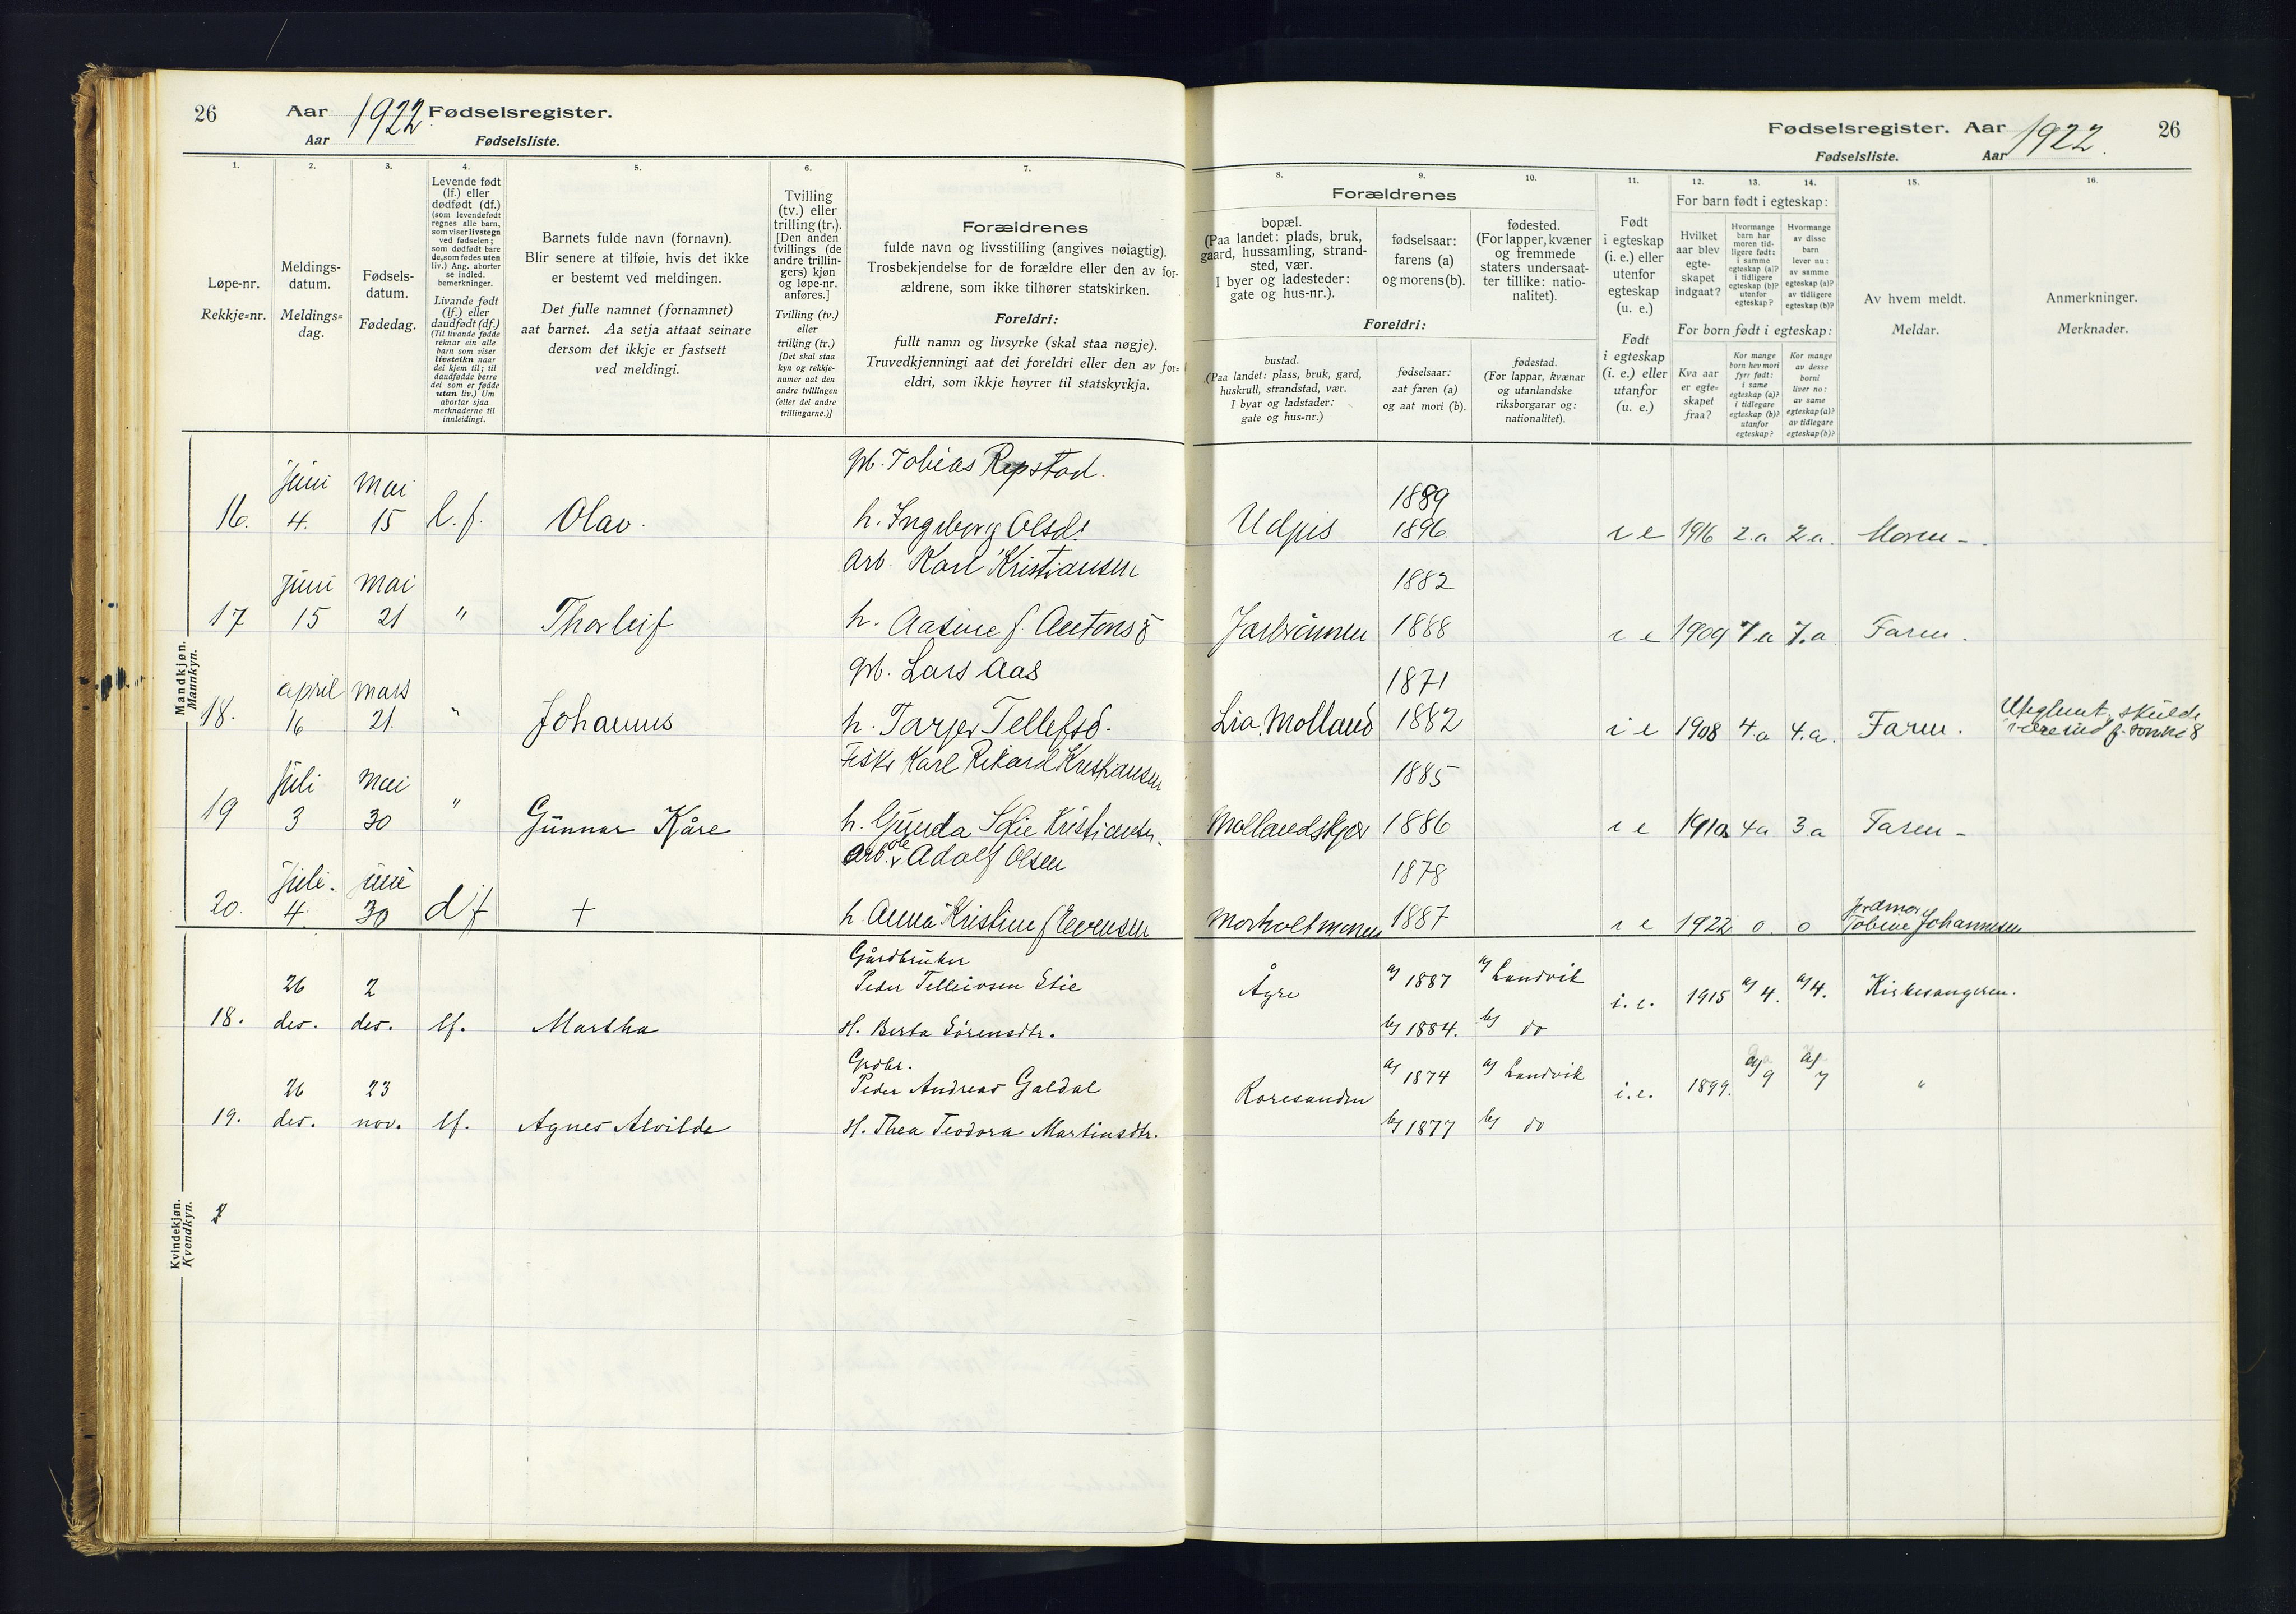 26 Aar 1922 Fødselsregister.
Aar Fødselsliste.
Fødselsregister. Aar 1922. 26
Fødselsliste. Aar
1. 2. 3. 4. 5. 6. 7.
Løpe-nr.
Rekkje=nr.
Meldings-
datum.
Meldings=
dag.
Fødsels-
datum.
Fødedag.
Levende født
(lf.) eller
dødfødt (df.)
(som levendefødt
regnes alle barn,
som viser livstegn
ved fødselen;
som dødfødt bare
de, som fødes uten
liv.) Ang. aborter
se indled.
bemerkninger.
Livande født
(lf.) eller
daudfødt (df.)
(Til livande fødde
reknar ein alle
barn som viser
livsteikn naar
dei kjem til; til
daudfødde berre
dei som er fødde
utan liv.) Um
abortar sjaa
merknaderne til
innleidingi.
Barnets fulde navn (fornavn).
Blir senere at tilføie, hvis det ikke
er bestemt ved meldingen.
Det fulle namnet (fornamnet)
aat barnet. Aa setja attaat seinare
dersom det ikkje er fastsett
ved meldingi.
Tvilling
(tv.) eller
trilling (tr.).
[Den anden
tvillings (de
andre trillin-
gers) kjøn
og løpe-nr.
anføres.]
Tvilling (tv.)
eller
trilling (tr.)
[Det skal staa
kyn og rekkje-
numer aat den
andre tvillingen
(eller dei andre
trillingarne.)]
Forældrenes
fulde navn og livsstilling (angives nøiagtig).
Trosbekjendelse for de forældre eller den av for-
ældrene, som ikke tilhører statskirken.
Foreldri:
fullt namn og livsyrke (skal staa nøgje).
Truvedkjenningi aat dei foreldri eller den av for=
eldri, som ikkje høyrer til statskyrkja.
8. 9. 10. 11. 12. 13. 14. 15. 16.
Forældrenes
bopæl.
(Paa landet: plads, bruk,
gaard, hussamling, strand-
sted, vær.
I byer og ladesteder:
gate og hus-nr.).
fødselsaar:
farens (a)
og morens (b).
fødested.
(For lapper, kvæner
og fremmede
staters undersaat-
ter tillike: natio-
nalitet).
Foreldri:
bustad.
(Paa landet: plass, bruk, gard,
huskrull, strandstad, vær.
I byar og ladstader:
gate og hus=nr.)
fødselsaar:
aat faren (a)
og aat mori (b).
fødestad.
(For lappar, kvænar
og utanlandske
riksborgarar og:
nationalitet).
Født
i egteskap
(i. e.) eller
utenfor
egteskap
(u. e.)
Født
i egteskap
(i. e.) eller
utanfor
(u. e.)
For barn født i egteskap:
Hvilket
aar blev
egte-
skapet
indgaat?
Hvormange
barn har
moren tid-
ligere født:
i samme
egteskap (a)?
i tidligere
egteskap (b)?
utenfor
egteskap?
Hvormange
av disse
barn
lever nu:
av samme
egteskap (a)?
av tidligere
egteskap (b)?
For born født i egteskap:
Kva aar
er egte=
skapet
fraa?
Kor mange
born hev mori
fyrr født:
i same
egteskap (a)?
i tidlegare
egteskap (b)?
utanfor
egteskap?
Kor mange
av desse
borni
liver no:
av same
egteskap (a)?
av tidlegare
egteskap (b)?
Av hvem meldt.
Meldar.
Anmerkninger.
Merknader.
Mandkjøn.
Mannkyn.
gb. Tobias Repstad.
juni mai 1889
16. 4. 15 l. f. Olav. h. Ingeborg Olsd. 1896 i e 1916 2.a 2.a. Moren -
arb. Karl Kristiansen
juni mai 1882
17 15 21 " Thorleif h. Aasine f. Antonsd 1888 i e 1909 7.a 7.a Faren.
gb. Lars Aas
april mars 1871
18. 16 21. " Johannes h. Tarjer Tellefsd. Lia, Molland 1882 i e 1908 4.a 4.a. Faren.
Fisk. Karl Rikard Kristiansen
juli mai 1885
19 3 30 " Gunnar Kåre h. Gunda Sofie Kristiansen. Mollandskjær 1886 i e 1910 4a 3a Faren -
arb. Ole Adolf Olsen
juli. juni 1878
20. 4. 30 d f + h. Anna Kristine f Evensen Morholtmoen 1887 i e 1922 0. 0 Jordmor
Tobine Johannesen
Kvindekjøn.
Kvendkyn.
Gårdbruker
26 2 Peder Telleivsen Stie Ågre a) 1887 a) Landvik i. e. 1915 a) 4. a) 4. Kirkesangeren.
18. des. des. lf. Martha H. Berta Sørensdtr. b) 1884. b) do
Grdbr.
26 23 Peder Andreas Galdal Roresanden a) 1874 a) Landvik i. e. 1899. a) 9 a) 7 "
19. des. nov. lf. Agnes Alvilde H. Thea Teodora Martinsdtr. b) 1877 b) do